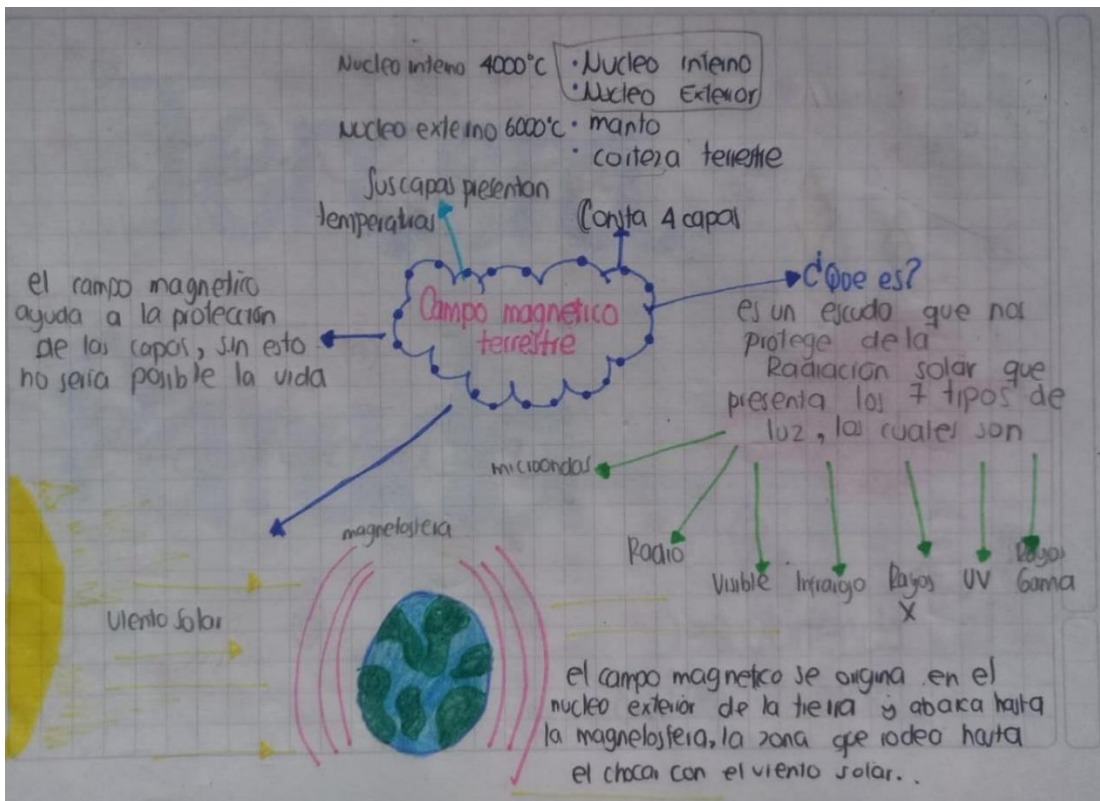 Nucleo interno 4000°C
Nucleo externo 6000°C
• Nucleo interno
• Nucleo Exterior
• manto
• corteza terrestre
Sus capas presentan
temperatras
Consta 4 capas
Campo magnetico
terrestre
el campo magnetico
ayuda a la protección
de las capas, sin esto
no seria posible la vida
¿Que es?
es un escudo que nos
protege de la
Radiación solar que
presenta los 7 tipos de
luz, las cuales son
microondas
Radio
Visible
Infrarojo
Rayos
X
UV
Rayos
Gama
magnetosfera
Viento solar
el campo magnetico se origina en el
nucleo exterior de la tierra y abarca hasta
la magnetosfera, la zona que rodea hasta
el chocar con el viento solar..